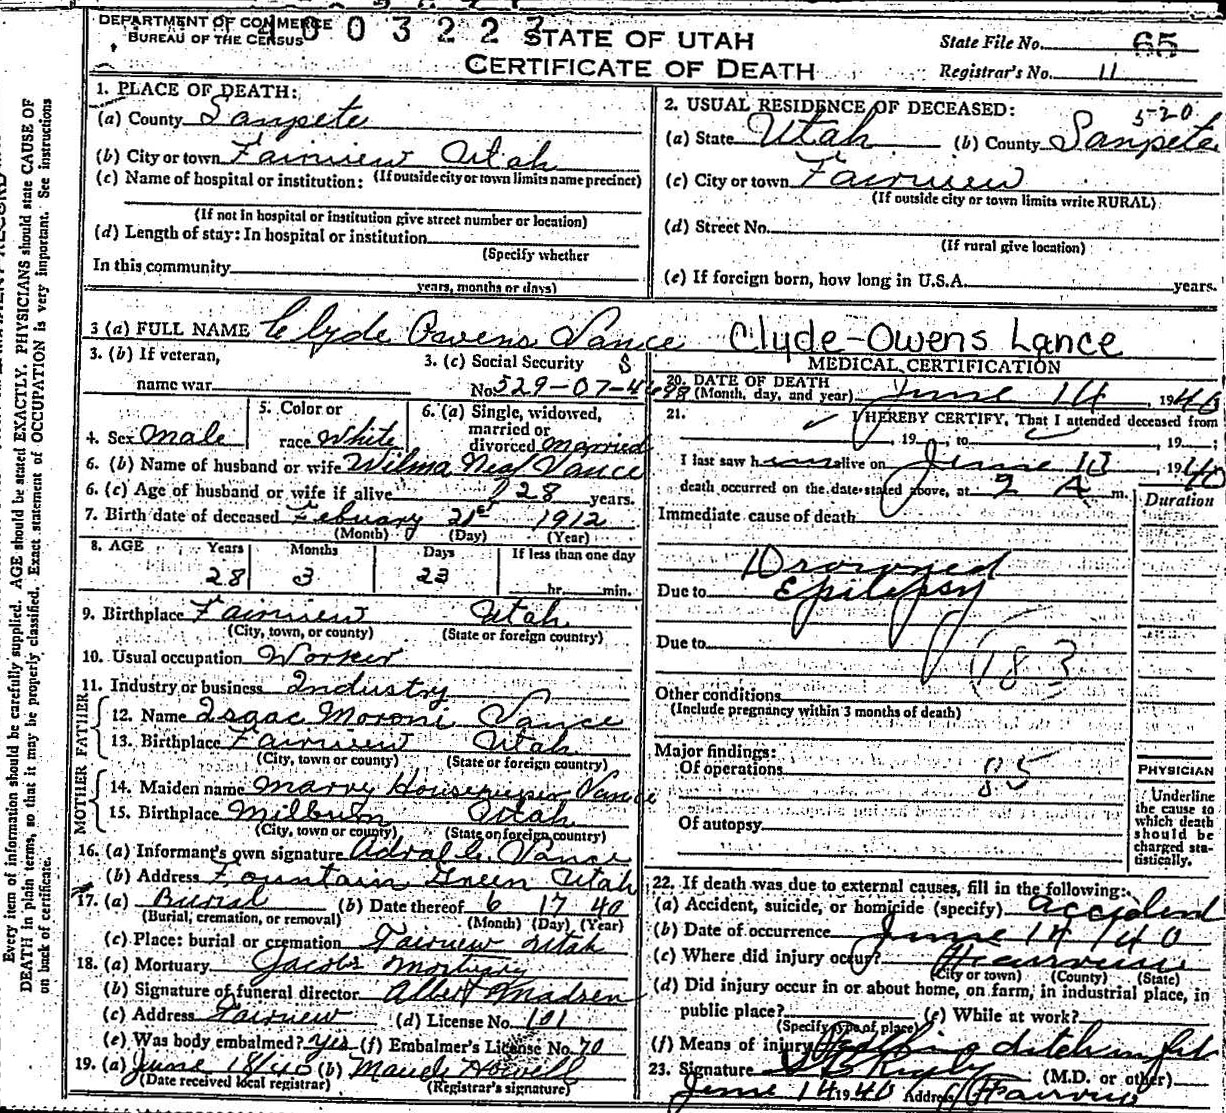 DEPARTMENT OF COMMERCE
BUREAU OF THE CENSUS
003223
STATE OF UTAH
CERTIFICATE OF DEATH
State File No. 65
Registrar's No. 11
1. PLACE OF DEATH:
(a) County Sanpete
(b) City or town Fairview Utah
(If outside city or town limits name precinct)
(c) Name of hospital or institution:
(If not in hospital or institution give street number or location)
(d) Length of stay: In hospital or institution
(Specify whether
In this community
years, months or days)
2. USUAL RESIDENCE OF DECEASED:
5-20
(a) State Utah (b) County Sanpete
(c) City or town Fairview
(If outside city or town limits write RURAL)
(d) Street No.
(If rural give location)
(e) If foreign born, how long in U.S.A. years.
3 (a) FULL NAME Clyde Owens Lance Clyde-Owens Lance
3. (b) If veteran,
name war
3. (c) Social Security
No. 529-07-4698
4. Sex Male
5. Color or
race White
6. (a) Single, widowed,
married or
divorced married
6. (b) Name of husband or wife Wilma Lance
6. (c) Age of husband or wife if alive 28 years.
7. Birth date of deceased Febuary 21st 1912
(Month) (Day) (Year)
8. AGE Years Months Days If less than one day
28 3 23 hr. min.
9. Birthplace Fairview Utah
(City, town, or county) (State or foreign country)
10. Usual occupation Worker
11. Industry or business Industry
FATHER
12. Name Isaac Moroni Lance
13. Birthplace Fairview Utah
(City, town or county) (State or foreign country)
MOTHER
14. Maiden name Lance
15. Birthplace Milburn Utah
(City, town or county) (State or foreign country)
16. (a) Informant's own signature Lance
(b) Address Fountain Green Utah
17. (a) Burial (b) Date thereof 6 17 40
(Burial, cremation, or removal) (Month) (Day) (Year)
(c) Place: burial or cremation Fairview Utah
18. (a) Mortuary Jacobs Mortuary
(b) Signature of funeral director Albert Madsen
(c) Address Fairview (d) License No. 101
(e) Was body embalmed? yes (f) Embalmer's License No. 70
19. (a) June 18/40 (b) Maude Howell
(Date received local registrar) (Registrar's signature)
MEDICAL CERTIFICATION
20. DATE OF DEATH
(Month, day, and year) June 14, 1940
21. I HEREBY CERTIFY, That I attended deceased from
, 19 , to , 19 ;
I last saw him alive on June 13, 1940
death occurred on the date stated above, at 2 A m.
Duration
Immediate cause of death
Drowned
Due to Epilepsy
Due to
183
Other conditions
(Include pregnancy within 3 months of death)
Major findings:
Of operations
85
Of autopsy
PHYSICIAN
Underline
the cause to
which death
should be
charged sta-
tistically.
22. If death was due to external causes, fill in the following:
(a) Accident, suicide, or homicide (specify) accident
(b) Date of occurrence June 14 1940
(c) Where did injury occur? Fairview
(City or town) (County) (State)
(d) Did injury occur in or about home, on farm, in industrial place, in
public place? (e) While at work?
(Specify type of place)
(f) Means of injury ditch in
23. Signature (M.D. or other)
June 14 1940 Address Fairview
Every item of information should be carefully supplied. AGE should be stated EXACTLY. PHYSICIANS should state CAUSE OF
DEATH in plain terms, so that it may be properly classified. Exact statement of OCCUPATION is very important. See instructions
on back of certificate.